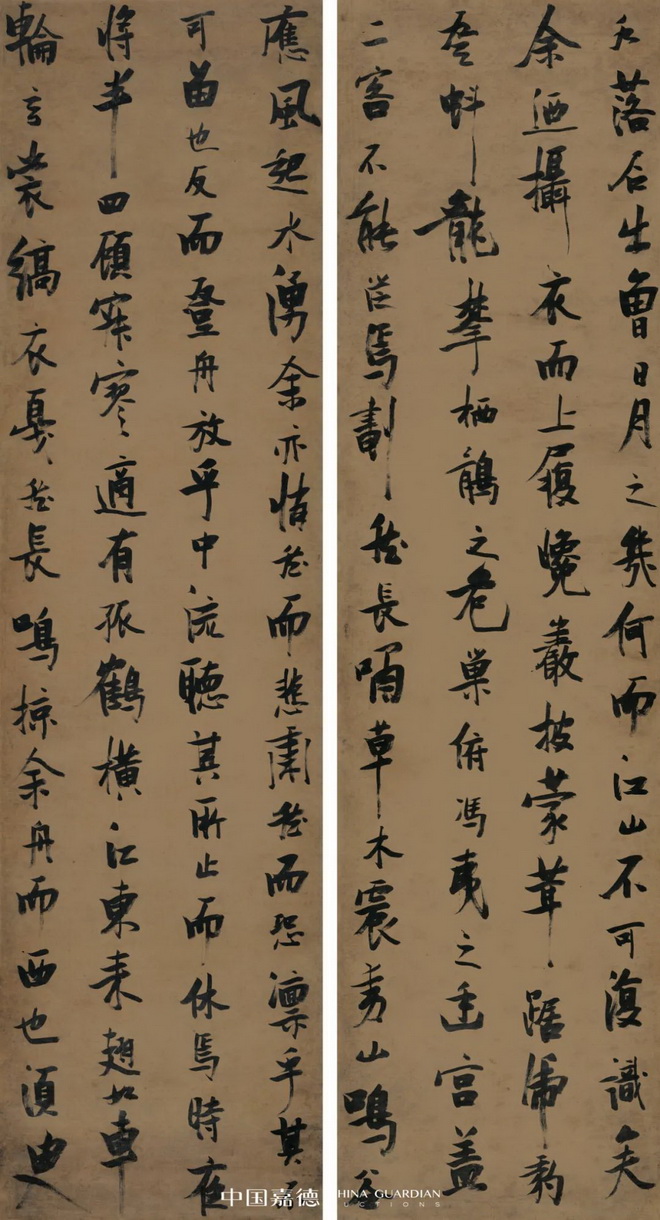 水落石出曾日月之幾何而江山不可復識矣
余迺攝衣而上履巉巖披蒙茸踞虎豹
登虯龍攀栖鶻之危巢俯馮夷之幽宮蓋
二客不能從焉劃然長嘯草木震動山鳴谷
應風起水湧余亦悄然而悲肅然而恐凜乎其不
可留也反而登舟放乎中流聽其所止而休焉時夜
將半四顧寂寥適有孤鶴橫江東來翅如車
輪玄裳縞衣戛戛然長鳴掠余舟而西也須臾
中国嘉德 HINA GUARDIAN
UCTIONS